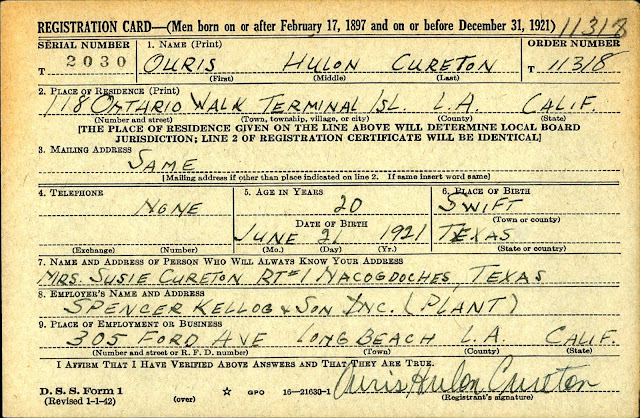 REGISTRATION CARD—(Men born on or after February 17, 1897 and on or before December 31, 1921) 11318
SERIAL NUMBER 1. NAME (Print) ORDER NUMBER
T 2030 OURIS HULON CURETON T 11318
(First) (Middle) (Last)
2. PLACE OF RESIDENCE (Print)
118 ONTARIO WALK TERMINAL ISL. L.A. CALIF.
(Number and street) (Town, township, village, or city) (County) (State)
[THE PLACE OF RESIDENCE GIVEN ON THE LINE ABOVE WILL DETERMINE LOCAL BOARD
JURISDICTION; LINE 2 OF REGISTRATION CERTIFICATE WILL BE IDENTICAL]
3. MAILING ADDRESS
SAME
[Mailing address if other than place indicated on line 2. If same insert word same]
4. TELEPHONE 5. AGE IN YEARS 6. PLACE OF BIRTH
NONE 20 SWIFT
(Town or county)
DATE OF BIRTH
JUNE 21 1921 TEXAS
(Exchange) (Number) (Mo.) (Day) (Yr.) (State or country)
7. NAME AND ADDRESS OF PERSON WHO WILL ALWAYS KNOW YOUR ADDRESS
MRS. SUSIE CURETON RT#1 NACOGDOCHES, TEXAS
8. EMPLOYER'S NAME AND ADDRESS
SPENCER KELLOG & SON INC. (PLANT)
9. PLACE OF EMPLOYMENT OR BUSINESS
305 FORD AVE LONG BEACH L.A. CALIF.
(Number and street or R. F. D. number) (Town) (County) (State)
I AFFIRM THAT I HAVE VERIFIED ABOVE ANSWERS AND THAT THEY ARE TRUE.
D. S. S. Form 1
(Revised 1-1-42) (over) ☆ GPO 16—21630-1 Ouris Hulon Cureton
(Registrant's signature)